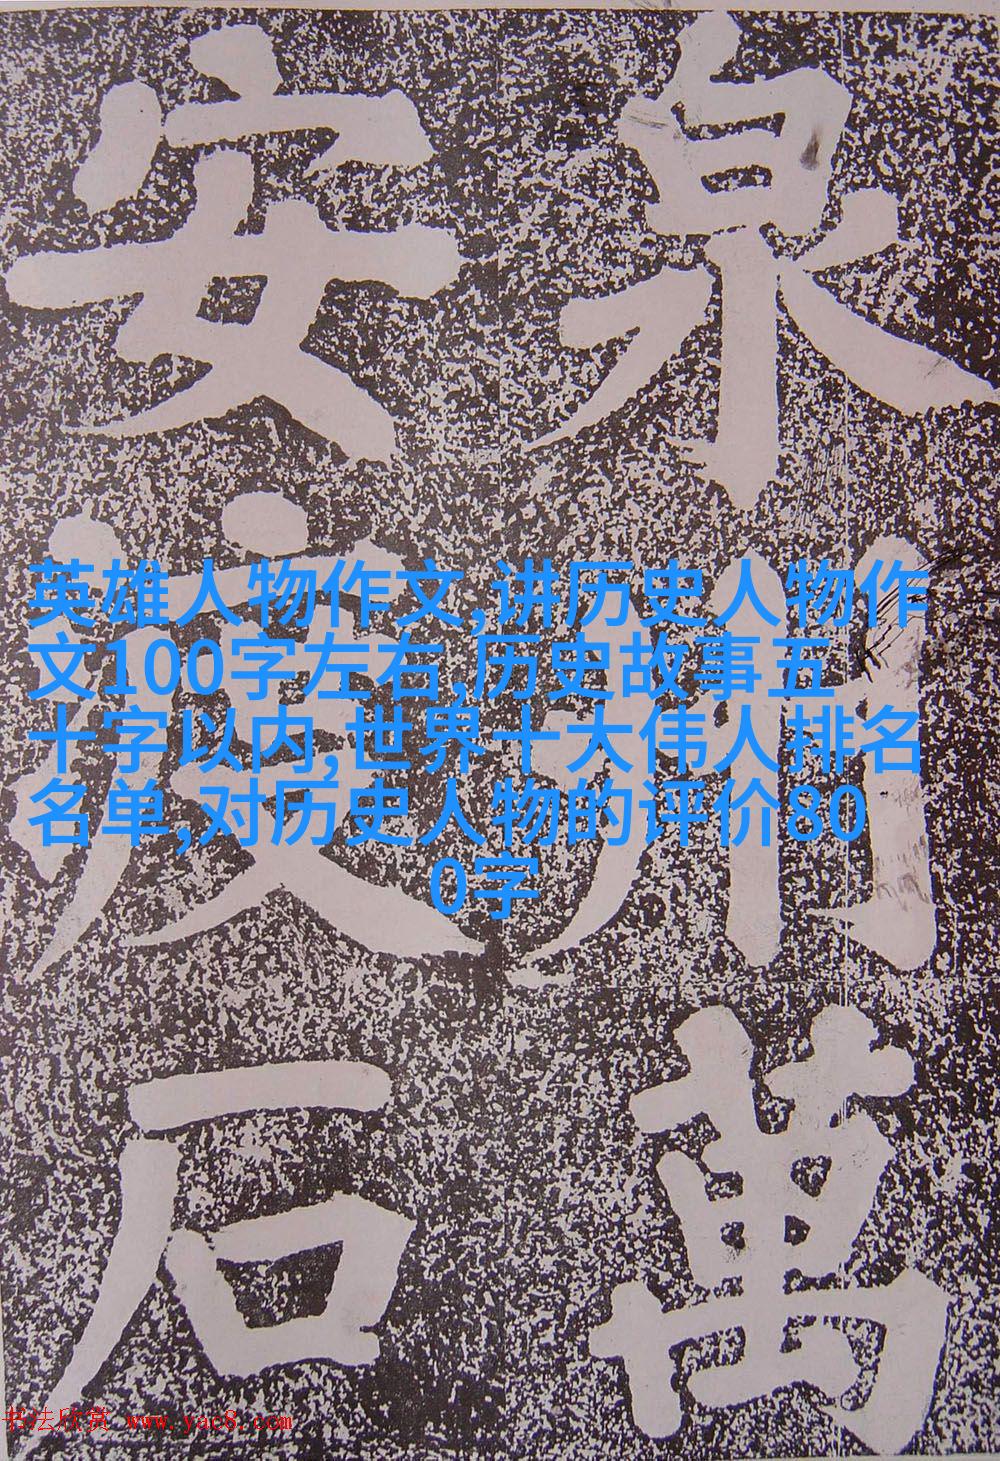 泉州萬
安渡石
英雄人物作文,讲历史人物作
文100字左右,历史故事五
十字以内,世界十大伟人排名
名单,对历史人物的评价80
0字
书法欣赏 www.yac8.com